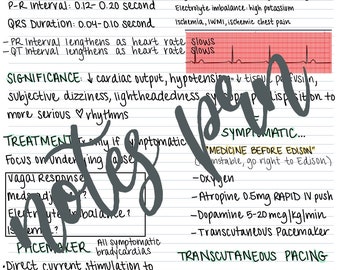 P-R Interval: 0.12-0.20 second
QRS Duration: 0.04-0.10 second
-PR Interval lengthens as heart rate slows
-QT Interval lengthens as heart rate slows
SIGNIFICANCE: ↓ cardiac output, hypotension, ↓ tissue
subjective dizziness, lightheadedness, to
more serious ♡ rhythms
TREATMENT: only if symptomatic
Focus on underlying
Vagal Response
Meds
Electrolyte imbalance?
PACEMAKER
All symptomatic
bradycardias
•Direct current stimulation to
Electrolyte imbalance: high potassium
Ischemia, IWMI, ischemic chest pain
SYMPTOMATIC...
"MEDICINE BEFORE EDISON"
go right to Edison.
-Oxygen
-Atropine 0.5mg RAPID IV push
-Dopamine 5-20 mcg/kg/min
-Transcutaneous Pacemaker
TRANSCUTANEOUS PACING
notes prn